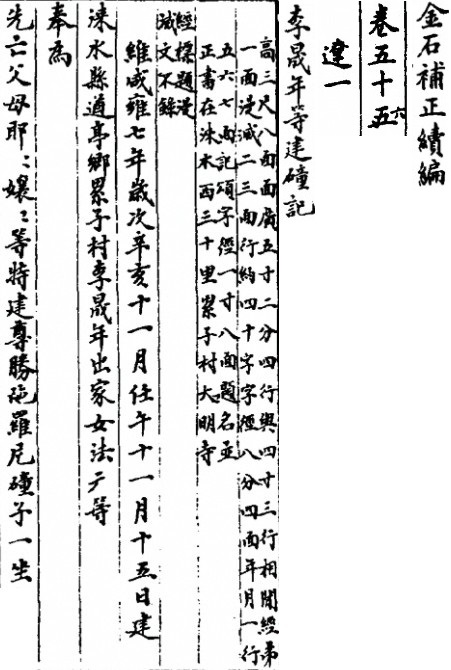 金石補正續編
卷五十五六
遼一
李晟年等建䃥記
高三尺八面面廣五寸二分四行與四寸三行相閒經弟
一面漫滅二三面行約四十字字徑八分四面年月一行
五六七面記頌字徑一寸八面題名並
正書在淶水西三十里累子村大明寺
經標題漫
滅文不錄
維咸雍七年歲次辛亥十一月任午十一月十五日建
淶水縣遒亭鄉累子村李晟年出家女法广等
奉為
先亡父母耶〻孃〻等特建尊勝陁羅尼䃥子一坐